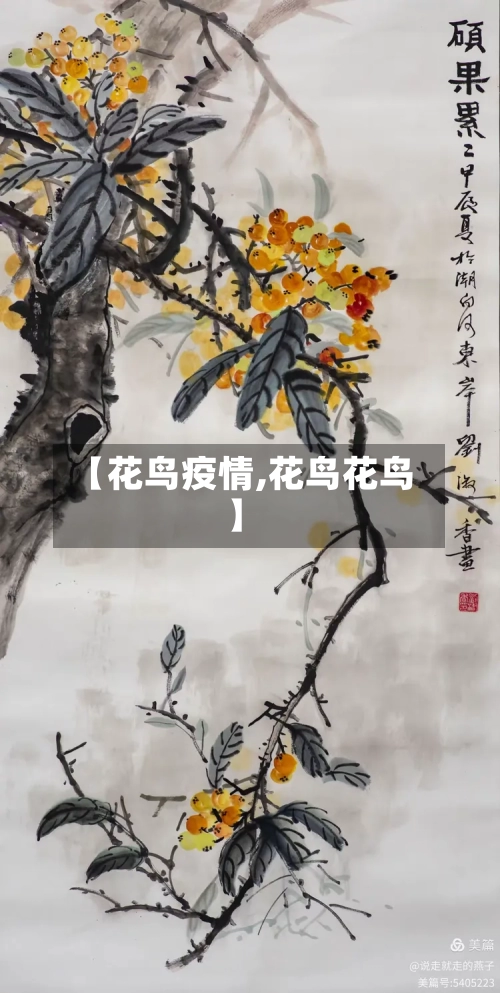 碩果累〻甲辰夏於潮白河東岸劉淑香畫
【花鸟疫情,花鸟花鸟
】
美篇
@说走就走的燕子
美篇号:5405223